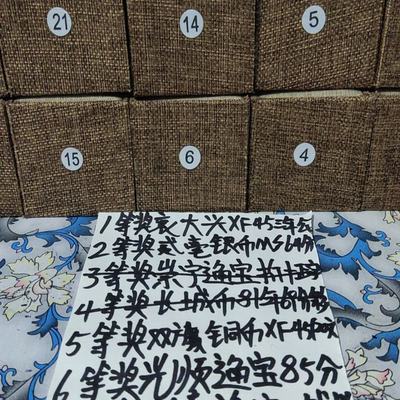 21 14 5
15 6 4
1等奖袁大兴XF45三年
2等奖贰毫银币MS64分
3等奖崇宁通宝
4等奖长城币81年68分
5等奖双旗铜币XF45
6等奖光顺通宝85分